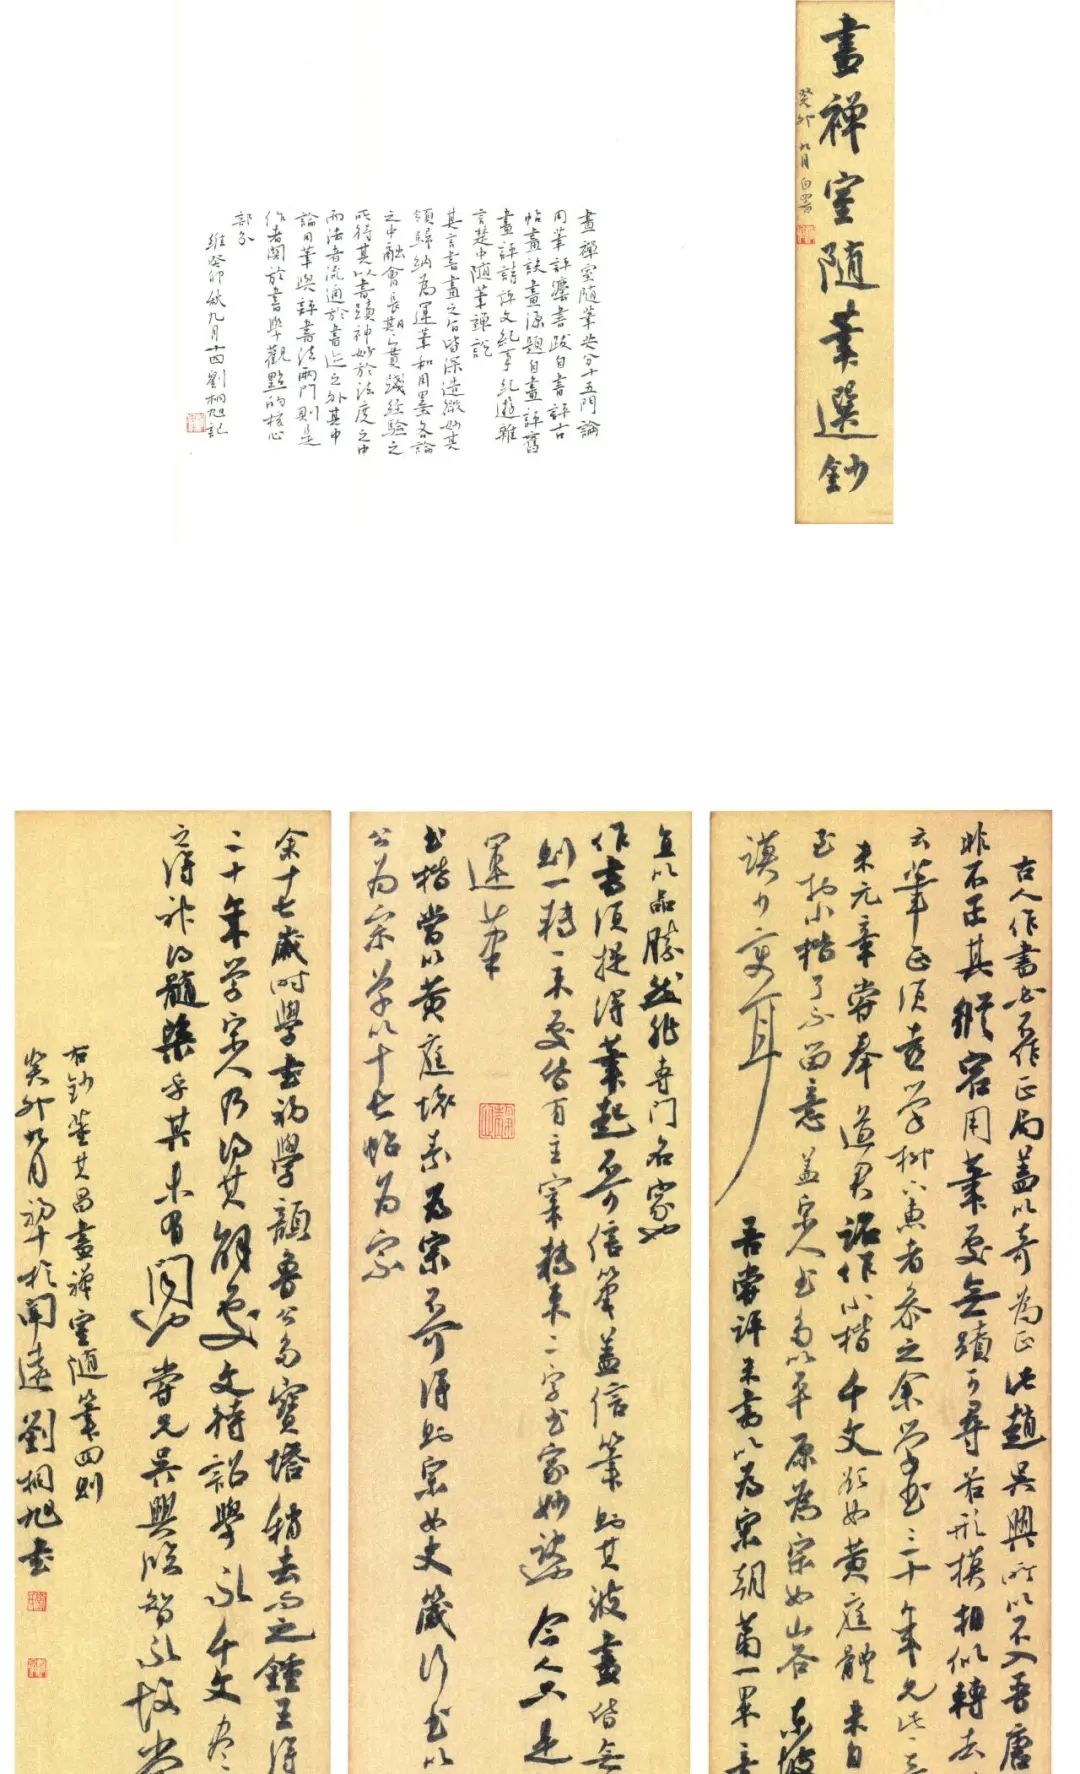 畫禪室随筆選鈔
癸卯九月自署
畫禪室随筆共分十五門論
用筆評法書跋自書評古
帖畫訣畫源題自畫評舊
畫評詩評文紀事紀遊雜
言楚中随筆禪說
其言書畫之旨皆深造微妙其
領歸納為運筆和用墨各論
之中融會長期之實踐經驗之
所得其以書蹟神妙於法度之中
而法者流通於書迹之外其中
論用筆與評書法兩門則是
作者関於書學觀點的核心
部分
維癸卯秋九月十四劉桐旭記
古人作書必不作正局蓋以奇為正此趙吳興所以不入吾唐
非不正其縱宕用筆處無蹟可尋若形模相似轉去
云筆正須善學柳下惠者參之余學書三十年見此
米元章嘗奉道君詔作小楷千文欲如黄庭體米自
至於小楷了不留意蓋宋人書多以平原為宗如山谷東坡
謨少變耳
吾嘗評米書以為宋朝第一畢竟
直以品勝然非專門名家也
作書須提得筆起不可信筆蓋信筆則其波畫皆無
則一轉一束處皆有主宰轉束二字書家妙訣今人只是
運筆
書楷當以黄庭懷素為宗不可得則宗女史箴行書以
公為宗草以十七帖為宗
余十七歲時學書初學顏魯公多寶塔稍去而之鍾王得
二十年學宗人乃得其解處文待詔學永千文盡
之得神得髓槩乎其未有聞也嘗見吳興臨智永故當
右鈔董其昌畫禅室随筆四則
癸卯九月初十於開遠劉桐旭書